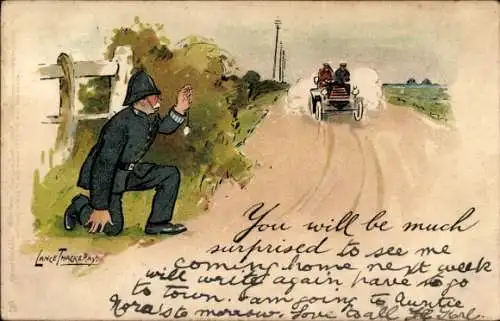 LANCE THACKERAY
You will be much
surprised to see me
coming home next week
will write again, have to go
to town. I am going to Auntie
Nora's to morrow. Love to all